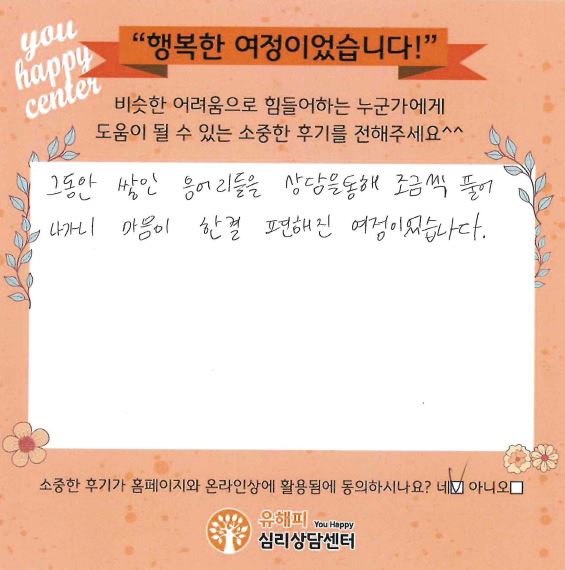 you
happy
center
“행복한 여정이었습니다!”
비슷한 어려움으로 힘들어하는 누군가에게
도움이 될 수 있는 소중한 후기를 전해주세요^^
그동안 쌓인 응어리들을 상담을통해 조금씩 풀어
나가니 마음이 한결 편해진 여정이었습니다.
소중한 후기가 홈페이지와 온라인상에 활용됨에 동의하시나요? 네☑ 아니오☐
유해피 You Happy
심리상담센터